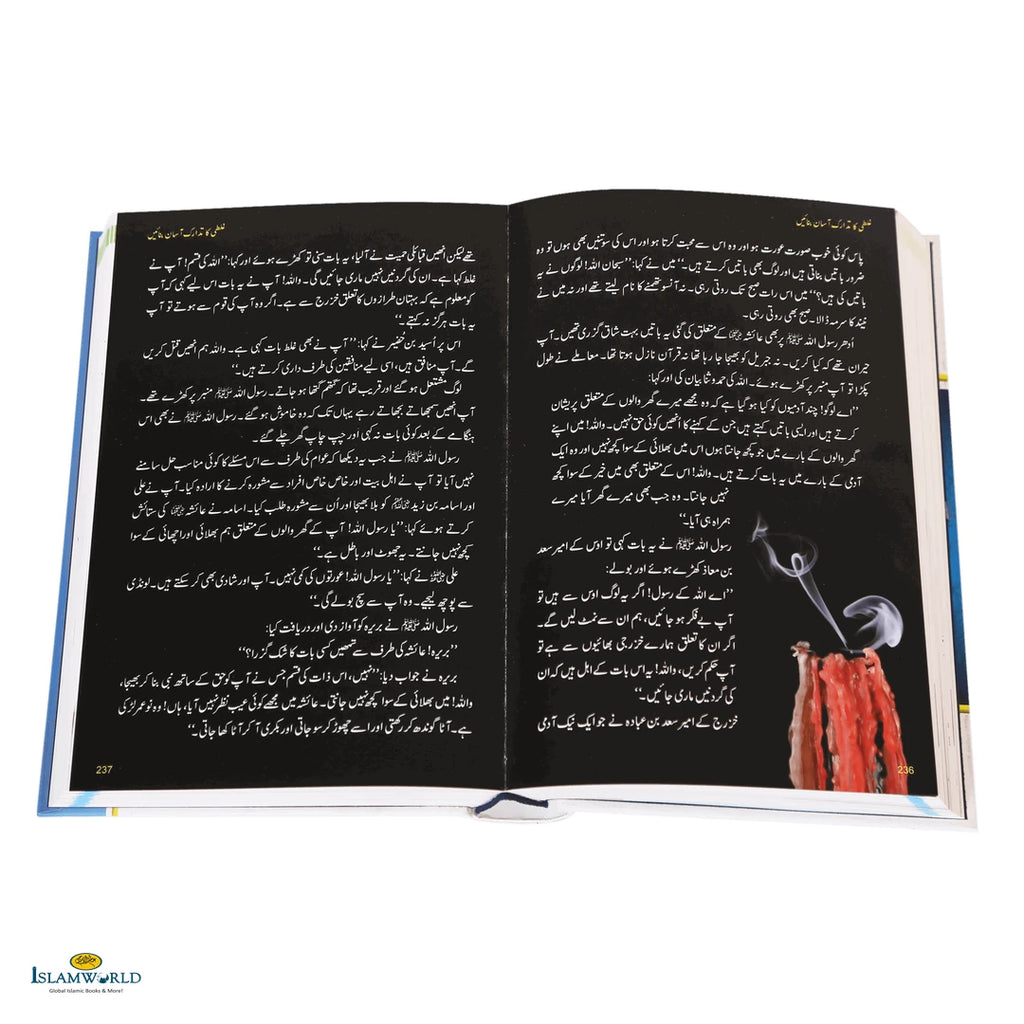 غلطی کا تدارک آسان بنائیں
پاس کوئی خوب صورت عورت ہو اور وہ اس سے محبت کرتا ہو اور اس کی سوتنیں بھی ہوں تو وہ
ضرور باتیں بناتی ہیں اور لوگ بھی باتیں کرتے ہیں۔‘‘ میں نے کہا: ’’سبحان اللہ! لوگوں نے یہ
باتیں کی ہیں؟‘‘ میں اس رات صبح تک روتی رہی۔ نہ آنسو تھمنے کا نام لیتے تھے اور نہ میں نے
نیند کا سرمہ ڈالا۔ صبح بھی روتی رہی۔
اُدھر رسول اللہ ﷺ پر بھی عائشہ رضی اللہ عنہا کے متعلق کی گئی یہ باتیں بہت شاق گزری تھیں۔ آپ
حیران تھے کہ کیا کریں۔ نہ جبریل کو بھیجا جا رہا تھا نہ قرآن نازل ہوتا تھا۔ معاملے نے طول
پکڑا تو آپ منبر پر کھڑے ہوئے۔ اللہ کی حمد و ثنا بیان کی اور کہا:
’’اے لوگو! چند آدمیوں کو کیا ہو گیا ہے کہ وہ مجھے میرے گھر والوں کے متعلق پریشان
کرتے ہیں اور ایسی باتیں کہتے ہیں جن کے کہنے کا انھیں کوئی حق نہیں۔ واللہ! میں اپنے
گھر والوں کے بارے میں جو کچھ جانتا ہوں اس میں بھلائی کے سوا کچھ نہیں اور وہ ایک
آدمی کے بارے میں یہ بات کرتے ہیں۔ واللہ! اس کے متعلق بھی میں خیر کے سوا کچھ
نہیں جانتا۔ وہ جب بھی میرے گھر آیا میرے
ہمراہ ہی آیا۔‘‘
رسول اللہ ﷺ نے یہ بات کہی تو اوس کے امیر سعد
بن معاذ کھڑے ہوئے اور بولے:
’’اے اللہ کے رسول! اگر یہ لوگ اوس سے ہیں تو
آپ بے فکر ہو جائیں، ہم ان سے نمٹ لیں گے۔
اگر ان کا تعلق ہمارے خزرجی بھائیوں سے ہے تو
آپ حکم کریں، واللہ! یہ اس بات کے اہل ہیں کہ ان
کی گردنیں ماری جائیں۔‘‘
خزرج کے امیر سعد بن عبادہ نے جو ایک نیک آدمی
236
غلطی کا تدارک آسان بنائیں
تھے لیکن انھیں قبائلی حمیت نے آلیا، یہ بات سنی تو کھڑے ہوئے اور کہا: ’’اللہ کی قسم! آپ نے
غلط کہا ہے۔ ان کی گردنیں نہیں ماری جائیں گی۔ واللہ! آپ نے یہ بات اس لیے کہی کہ آپ
کو معلوم ہے کہ بہتان طرازوں کا تعلق خزرج سے ہے۔ اگر وہ آپ کی قوم سے ہوتے تو آپ
یہ بات ہرگز نہ کہتے۔‘‘
اس پر اُسید بن حضیر نے کہا: ’’آپ نے بھی غلط بات کہی ہے۔ واللہ ہم انھیں قتل کریں
گے۔ آپ منافق ہیں، اسی لیے منافقین کی طرف داری کرتے ہیں۔‘‘
لوگ مشتعل ہو گئے اور قریب تھا کہ گتھم گتھا ہو جاتے۔ رسول اللہ ﷺ منبر پر کھڑے تھے۔
آپ انھیں سمجھاتے بجھاتے رہے یہاں تک کہ وہ خاموش ہو گئے۔ رسول اللہ ﷺ نے بھی اس
ہنگامے کے بعد کوئی بات نہ کہی اور چپ چاپ گھر چلے گئے۔
رسول اللہ ﷺ نے جب یہ دیکھا کہ عوام کی طرف سے اس مسئلے کا کوئی مناسب حل سامنے
نہیں آیا تو آپ نے اہل بیت اور خاص خاص افراد سے مشورہ کرنے کا ارادہ کیا۔ آپ نے علی
اور اسامہ بن زید رضی اللہ عنہم کو بلا بھیجا اور اُن سے مشورہ طلب کیا۔ اسامہ نے عائشہ رضی اللہ عنہا کی ستائش
کرتے ہوئے کہا: ’’یا رسول اللہ! آپ کے گھر والوں کے متعلق ہم بھلائی اور اچھائی کے سوا
کچھ نہیں جانتے۔ یہ جھوٹ اور باطل ہے۔‘‘
علی رضی اللہ عنہ نے کہا: ’’یا رسول اللہ! عورتوں کی کمی نہیں۔ آپ اور شادی بھی کر سکتے ہیں۔ لونڈی
سے پوچھ لیجیے۔ وہ آپ سے سچ بولے گی۔‘‘
رسول اللہ ﷺ نے بریرہ کو آواز دی اور دریافت کیا:
’’بریرہ! عائشہ کی طرف سے تمھیں کسی بات کا شک گزرا؟‘‘
بریرہ نے جواب دیا: ’’نہیں، اس ذات کی قسم جس نے آپ کو حق کے ساتھ نبی بنا کر بھیجا،
واللہ! میں بھلائی کے سوا کچھ نہیں جانتی۔ عائشہ میں مجھے کوئی عیب نظر نہیں آیا، ہاں! وہ نوعمر لڑکی
ہے۔ آٹا گوندھ کر رکھتی اور اسے چھوڑ کر سو جاتی اور بکری آ کر آٹا کھا جاتی۔‘‘
237
ISLAMWORLD
Global Islamic Books & More!